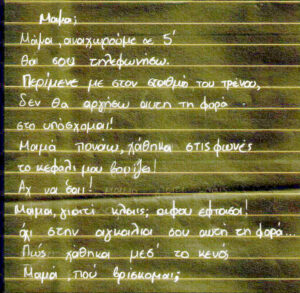 Μαμα;
Μάμα, αναχωρούμε σε 5'
θα σου τηλεφωνήσω.
Περίμενε με στον σταθμό του τρένου,
δεν θα αργήσω αυτη τη φορά.
στο υπόσχομαι!
Μαμά πονάω, χάθηκα στις φωνές
το κεφάλι μου βουίζει!
Αχ να δαι!
Μαμα, γιατί κλαις; αφου έφτασα!
όχι στην αγκαλιά σου αυτη τη φορά...
Πώς χάθηκα μεσ' το κενό
Μαμά, πού βρίσκομαι;